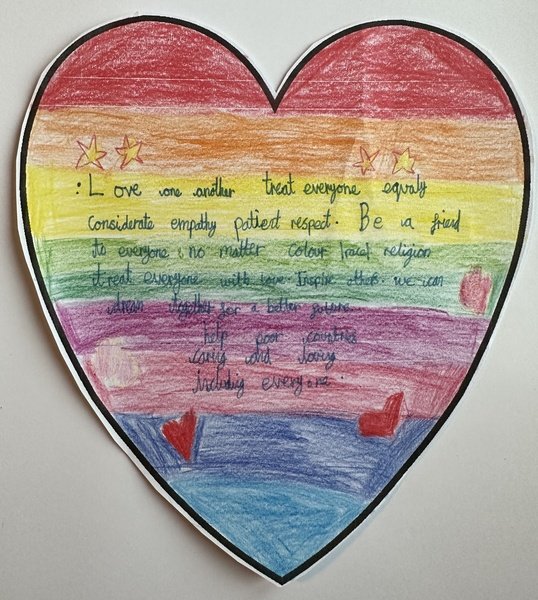 : Love one another treat everyone equaly
considerate empathy patient respect. Be a friend
to everyone no matter colour race religion
treat everyone with love. Inspire others. we can
dream together for a better future...
help poor countries
caring and loving
including everyone.